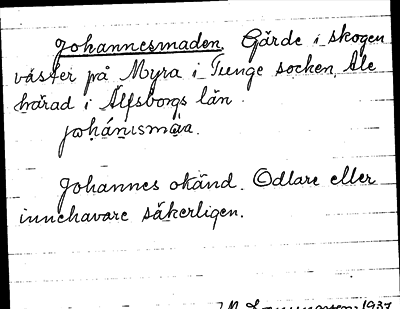 Johannesmaden. Gärde i skogen
väster på Myra i Tunge socken, Ale
härad i Älfsborgs län.
johánısmäa.
Johannes okänd. Odlare eller
innehavare säkerligen.
1937